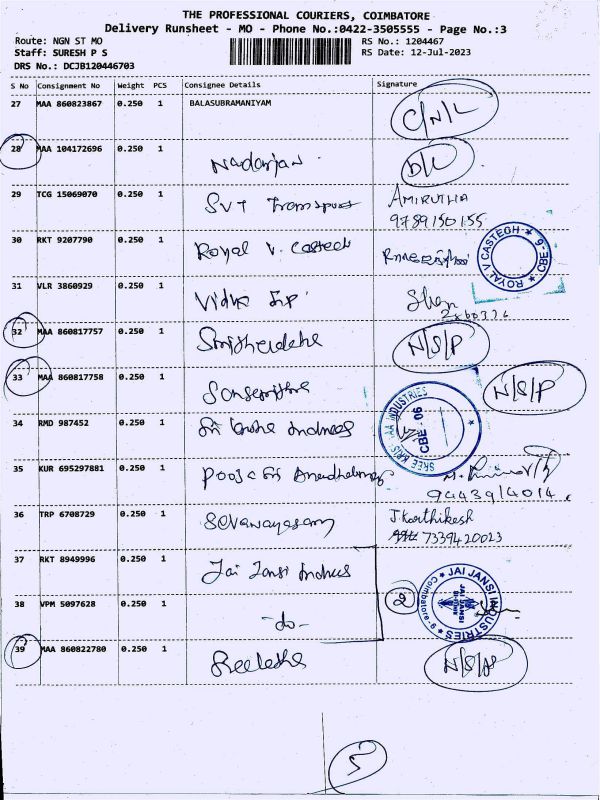 THE PROFESSIONAL COURIERS, COIMBATORE
Delivery Runsheet - MO - Phone No.:0422-3505555 - Page No.:3
Route: NGN ST MO
RS No.: 1204467
Staff: SURESH P S
RS Date: 12-Jul-2023
DRS No.: DCJB120446703
S No Consignment No Weight PCS Consignee Details Signature
27 MAA 860823867 0.250 1 BALASUBRAMANIYAM C/N/L
28 MAA 104172696 0.250 1 Nadarjan D/L
29 TCG 15069070 0.250 1 SVT Transport AMIRUTHA
9789150155
30 RKT 9207790 0.250 1 Royal V. Castech
ROYAL V CASTECH ★ CBE-6 ★
31 VLR 3860929 0.250 1 Vidya
32 MAA 860817757 0.250 1 N/S/P
33 MAA 860817758 0.250 1 N/S/P
34 RMD 987452 0.250 1 Sri
SREE KRIS AA INDUSTRIES ★ CBE-06
35 KUR 695297881 0.250 1 Pooja Sri
9443914014
36 TRP 6708729 0.250 1 Selvanayagam J. Karthikesh
7339420023
37 RKT 8949996 0.250 1 Jai Jansi Indus
38 VPM 5097628 0.250 1 -do- 2
★ JAI JANSI INDUSTRIES ★ Coimbatore-9
JAI JANSI
39 MAA 860822780 0.250 1 Sreelesha
5